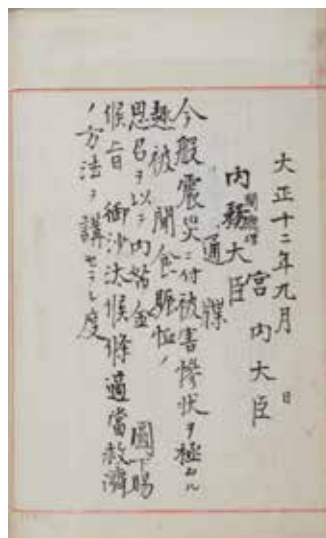 大正十二年九月　日
宮内大臣
内務大臣
通牒
今般震災ニ付被害惨状ヲ極ムル
趣被聞食賑恤ノ
思召ヲ以テ内帑金　圓下賜
候旨　御沙汰候條適當救濟
ノ方法ヲ講セラレ度